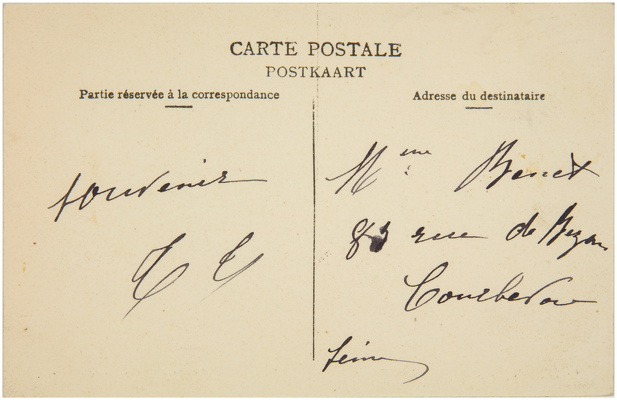 CARTE POSTALE
POSTKAART
Partie réservée à la correspondance
Adresse du destinataire
souvenir
Mme Benet
rue de Bezons
Courbevoie
Seine